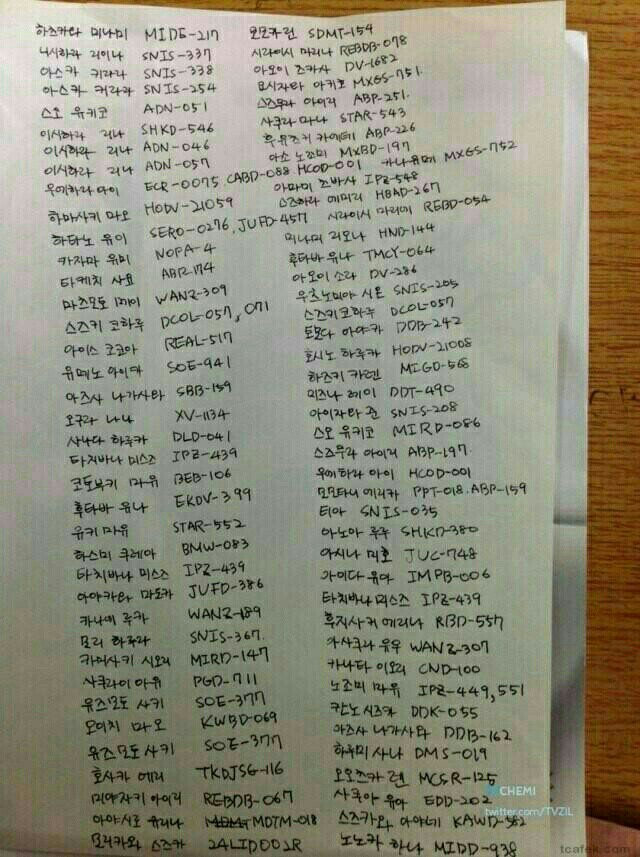 하즈키 미나미 MIDE-217
니시하라 리이나 SNIS-337
아스카 키라라 SNIS-338
아스카 키라라 SNIS-254
스오 유키코 ADN-051
이시하라 리나 SHKD-546
이시하라 리나 ADN-046
이시하라 리나 ADN-057
우에하라 아이 ECR-0075, CABD-088. HCOD-001
하마사키 마오 HODV-21059
하타노 유이 SERO-0276, JUFD-457
카자마 유미 NOPA-4
타케치 사요 ABP-174
마츠모토 메이 WANZ-309
스즈키 코하루 DCOL-057, 071
아이스 코코아 REAL-517
유메노 아이카 SOE-941
아즈사 나가사와 SBB-159
오구라 나나 XV-1134
사나다 하루카 DLD-041
타치바나 미스즈 IPZ-439
코토부키 마유 BEB-106
후타바 유나 EKDV-399
유키 마유 STAR-552
하스미 쿠레아 BMW-083
타치바나 미스즈 IPZ-439
아야카와 마도카 JUFD-386
카나에 루카 WANZ-189
모리 하루라 SNIS-367.
카미사키 시오리 MIRD-147
사쿠라이 아유 PGD-711
유즈모토 사키 SOE-377
모이치 마오 KWBD-069
유즈모토 사키 SOE-377
호사카 에리 TKDJSG-116
미야자키 아이리 REBDB-067
아야시로 유리나 MDTM-018
모리카와 스즈카 24LID002R
모모카 린 SDMT-154
시라이시 마리나 REBDB-078
아오이 츠카사 DV-1682
요시자와 아키호 MXGS-751.
스즈무라 아이리 ABP-251.
사쿠라 마나 STAR-543
후유츠키 카에데 ABP-226
아소 노조미 MXBD-197
카나 유메 MXGS-752
아마미 츠바사 IPZ-548
스즈하라 에미리 HBAD-267
시라이시 마리에 REBD-054
미나미 리오나 HND-144
후타바 유나 TMCY-064
아오이 소라 DV-286
우츠노미야 시온 SNIS-205
스즈키 코하루 DCOL-057
토모다 아야카 DDB-242
호시노 하루카 HODV-21008
하즈키 카렌 MIGD-568
미즈나 레이 DDT-490
아이자와 준 SNIS-208
스오 유키코 MIRD-086
스즈무라 아이리 ABP-197.
우에하라 아이 HCOD-001
모모타니 에리카 PPT-018. ABP-159
티아 SNIS-035
아노아 루루 SHKD-380
아시나 미호 JUC-748
아이다 유아 IMPB-006
타치바나 미스즈 IPZ-439
후지사키 에리나 RBD-557
아사쿠라 유우 WANZ-307
카나타 이오리 CND-100
노조미 마유 IPZ-449, 551
칸노 시즈카 DDK-055
아즈사 나가사와 DDB-162
하루미 사나 DMS-019
오오츠카 렌 MCSR-125
사쿠라 유아 EDD-202
스즈카와 아야네 KAWD-582
노노카 하나 MIDD-938
CHEMI
twitter.com/TVZIL
tcafek.com